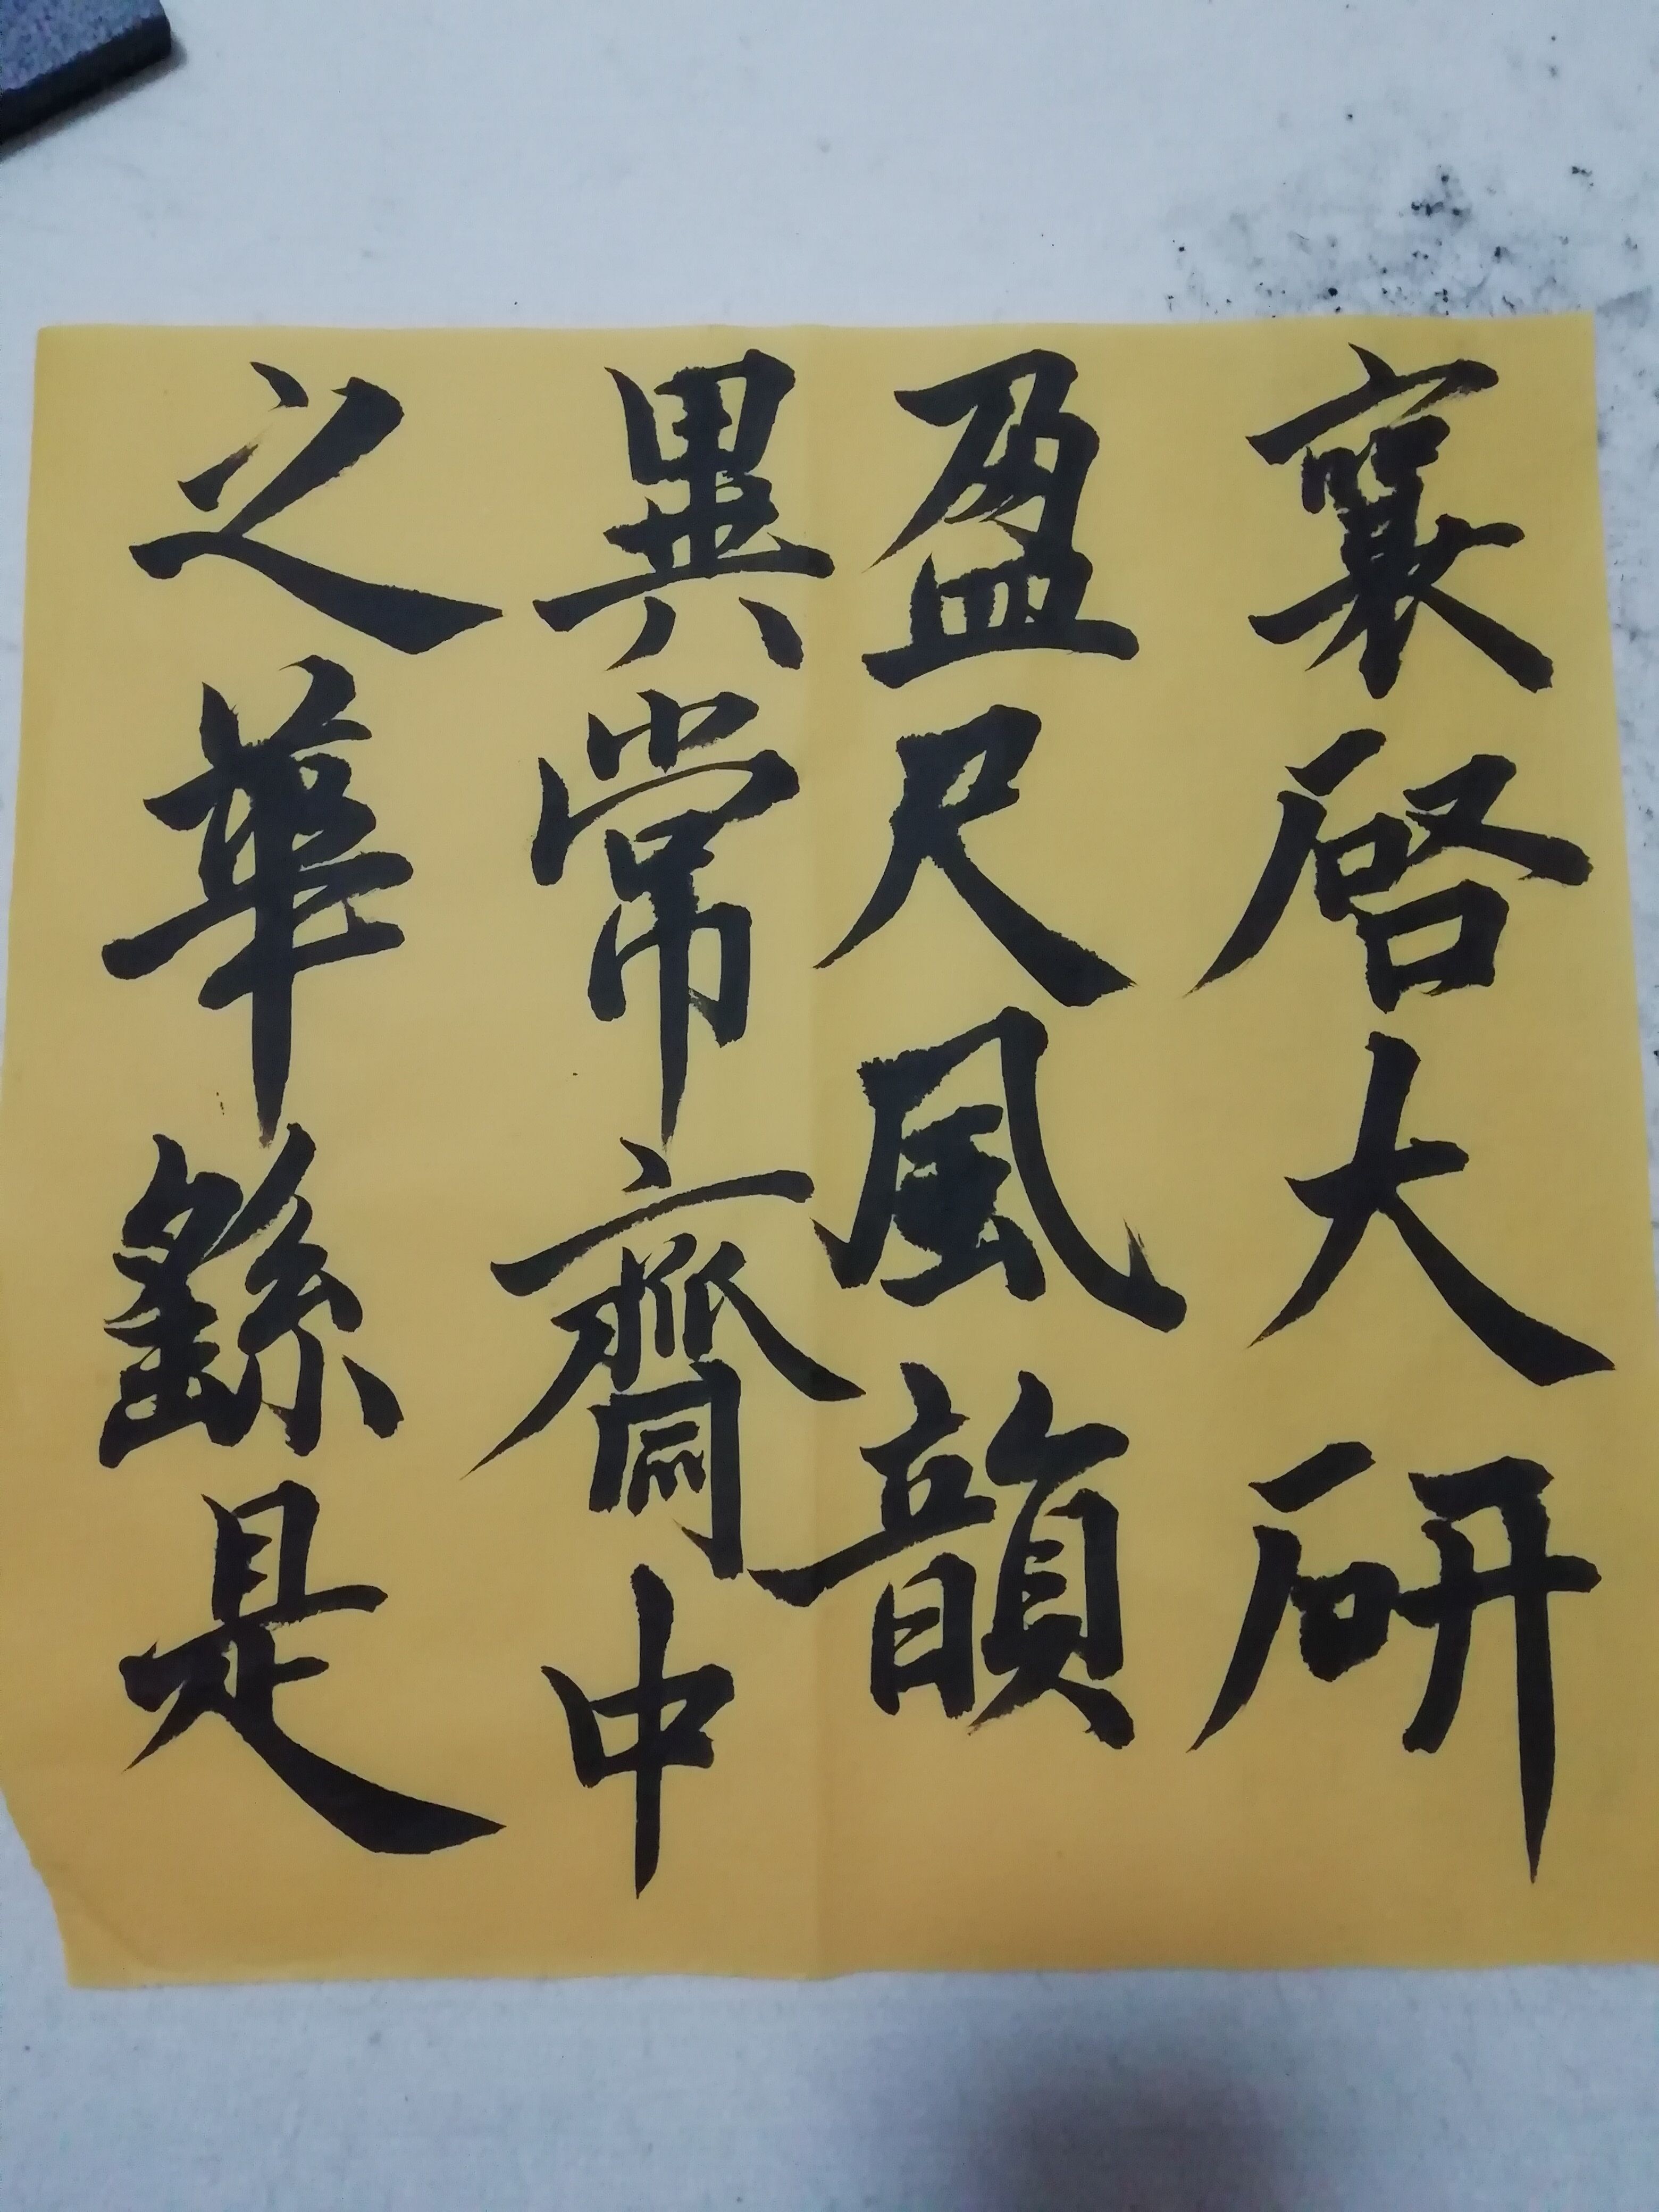 襄啓大研
盈尺風韻
異常齋中
之華繇是